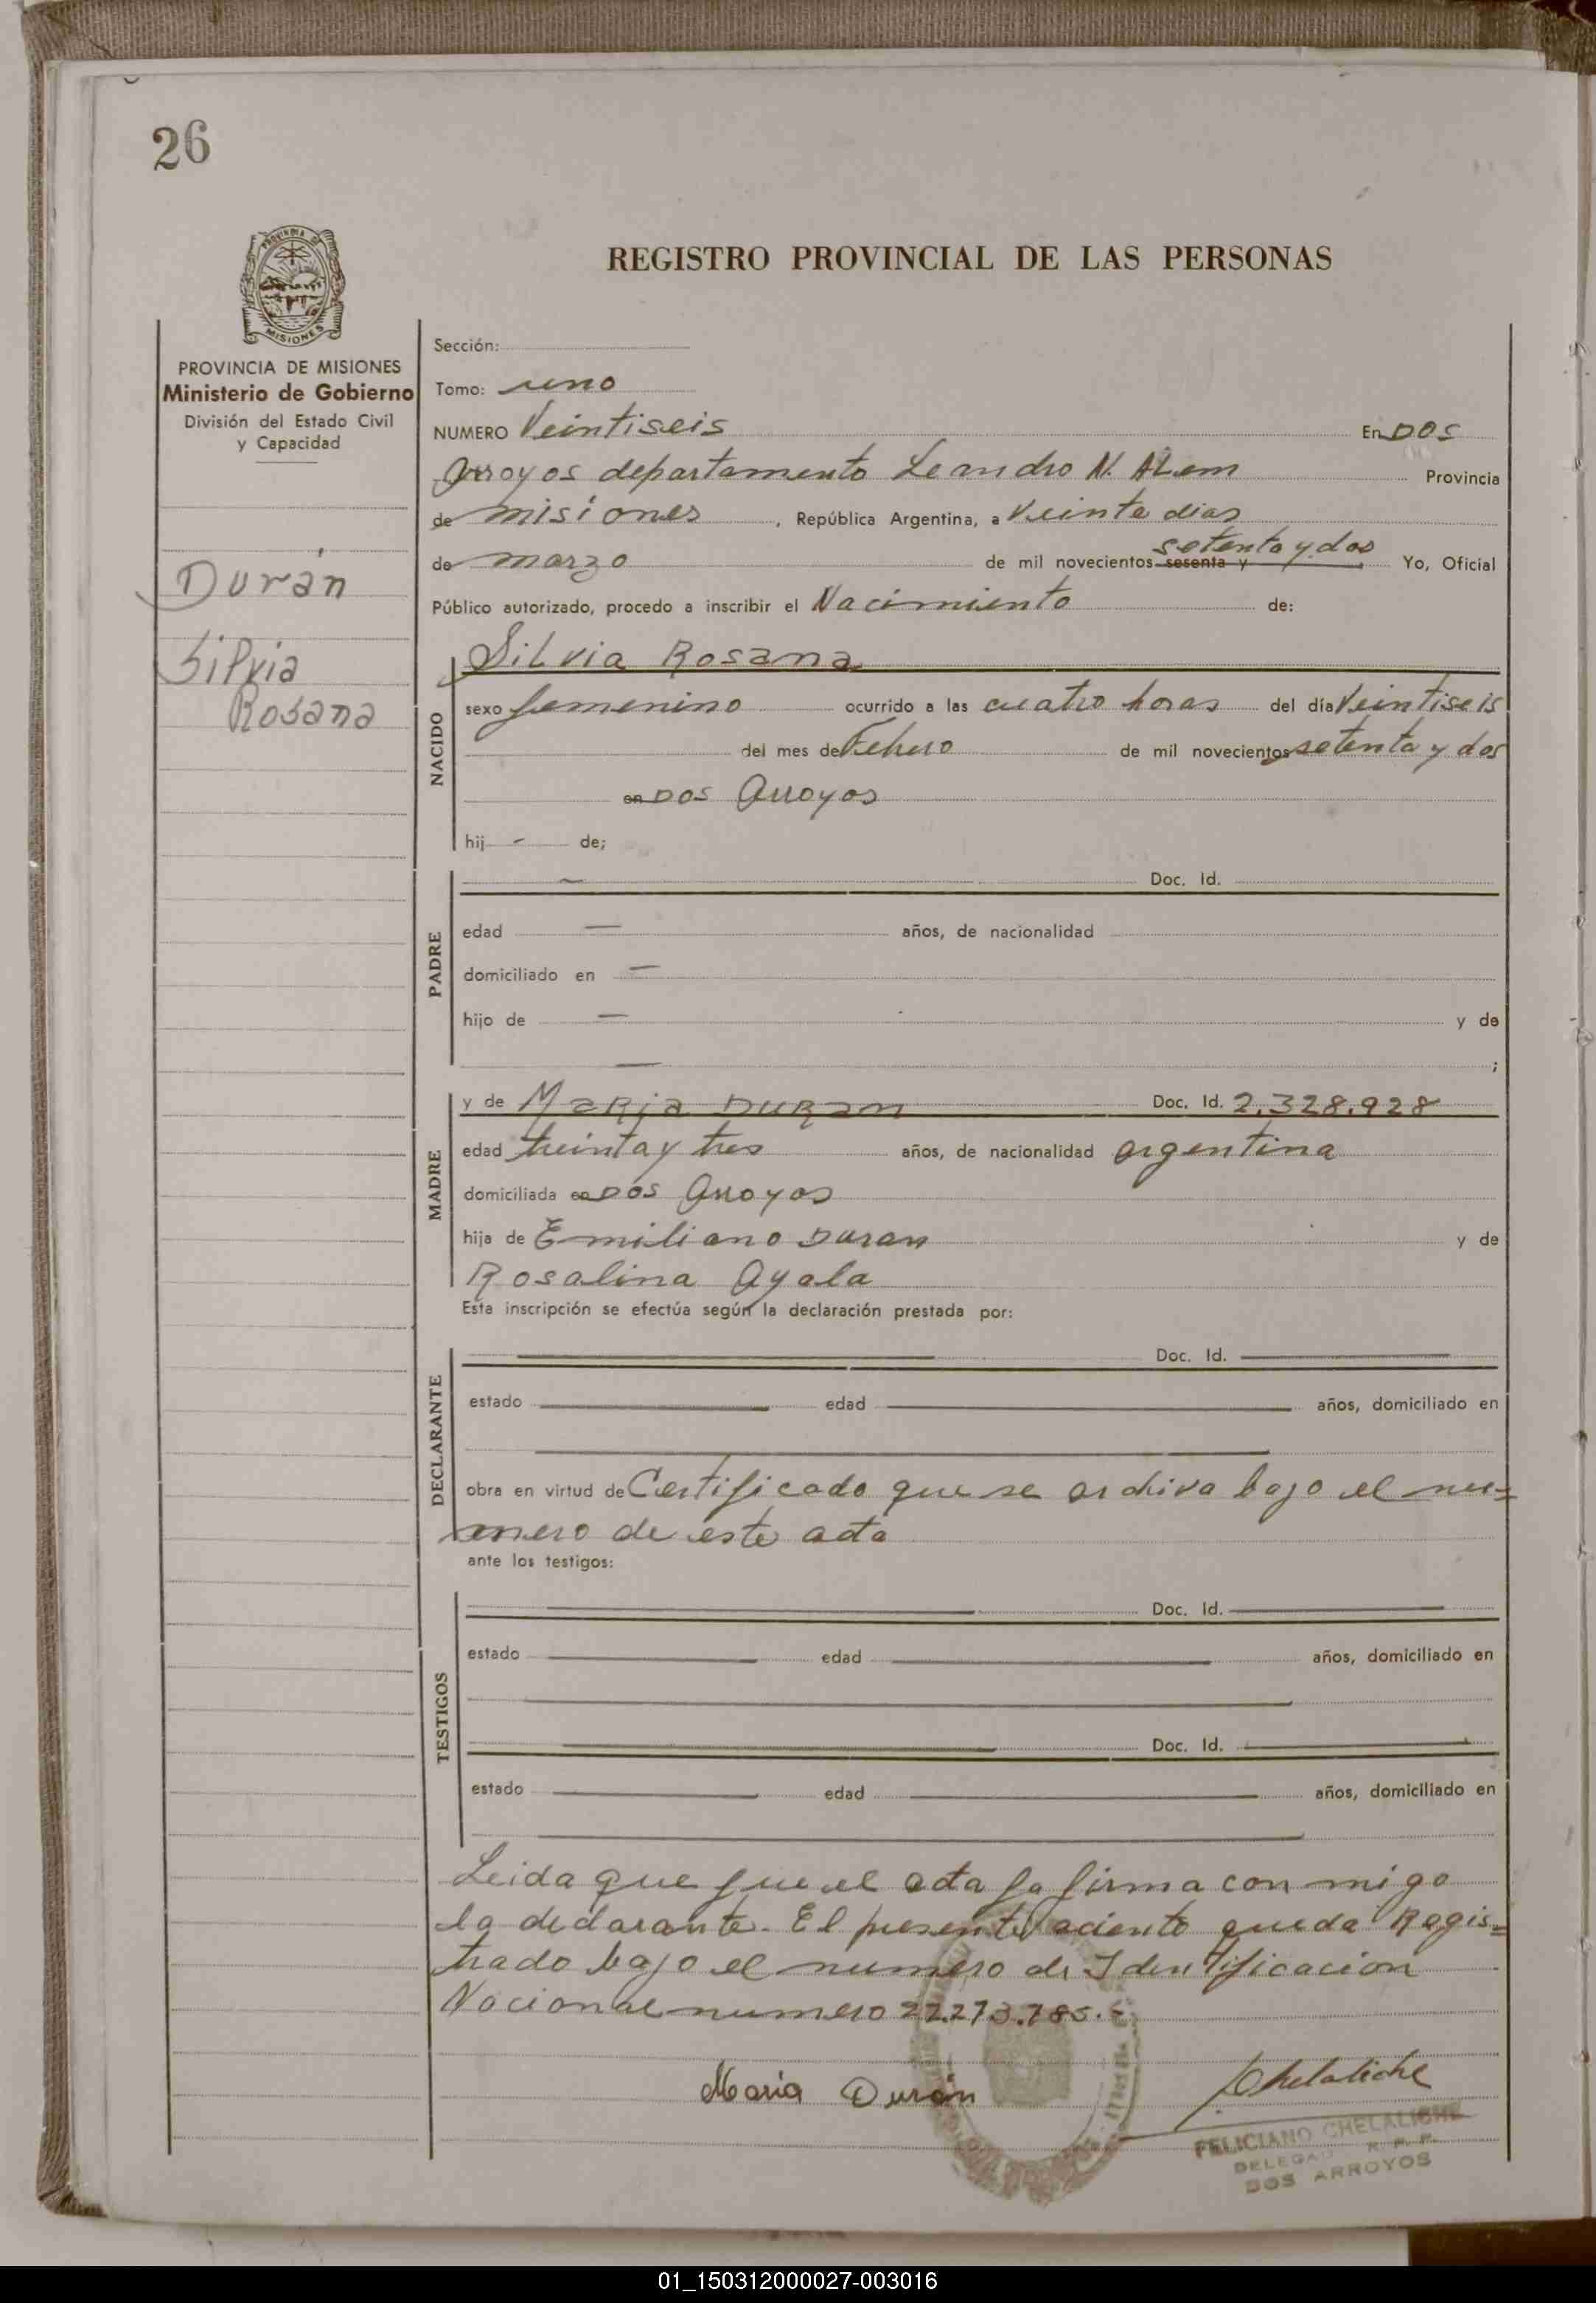 26
PROVINCIA DE
MISIONES
REGISTRO PROVINCIAL DE LAS PERSONAS
PROVINCIA DE MISIONES
Ministerio de Gobierno
División del Estado Civil
y Capacidad
Durán
Silvia
Rosana
Sección:
Tomo: uno
NUMERO Veintiseis En Dos
Arroyos departamento Leandro N. ALem Provincia
de misiones, República Argentina, a Veinte dias
de marzo de mil novecientos sesenta y setenta y dos Yo, Oficial
Público autorizado, procedo a inscribir el Nacimiento de:
NACIDO
SiLvia Rosana
sexo femenino ocurrido a las cuatro horas del día Veintiseis
del mes de Febrero de mil novecientos setenta y dos
en Dos Arroyos
hij - de;
PADRE
- Doc. Id.
edad — años, de nacionalidad
domiciliado en —
hijo de — y de
— ;
MADRE
y de Maria Duran Doc. Id. 2.328.928
edad treinta y tres años, de nacionalidad argentina
domiciliada en Dos Arroyos
hija de Emiliano Duran y de
Rosalina Ayala
Esta inscripción se efectúa según la declaración prestada por:
DECLARANTE
Doc. Id.
estado edad años, domiciliado en
obra en virtud de Certificado que se archiva bajo el nu=
mero de este acta
ante los testigos:
TESTIGOS
Doc. Id.
estado edad años, domiciliado en
Doc. Id.
estado edad años, domiciliado en
Leida que fue el acta la firma con migo
la declarante. El presente aciento queda Regis=
trado bajo el numero de Identificacion
Nacional numero 22.273.785.-
Maria Durán
Chelaliche
FELICIANO CHELALICHE
DELEGADO R. P. P.
DOS ARROYOS
01_150312000027-003016